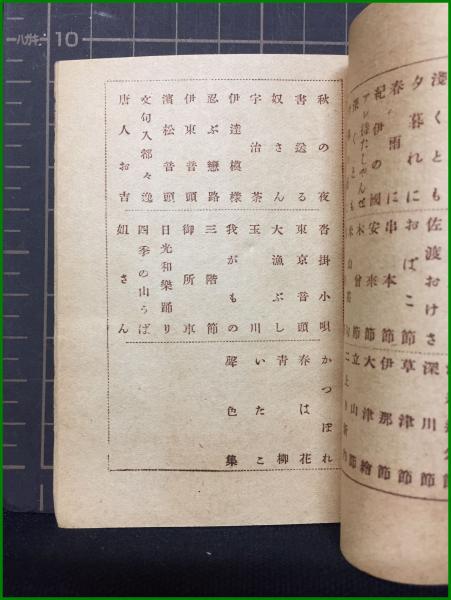 ハガキ 10
淺くとも 佐渡おけさ 深川節
夕暮れに おばこ節 草津節
春雨に 串本節 伊那節
紀伊の國 安来節 大津繪
木曾節 立山節
二上り新内
秋の夜 沓掛小唄 かつぽれ
書送る 東京音頭 春は花
奴さん 大漁ぶし 青柳
宇治茶 玉川 いたこ
伊達模様 我がもの 聲色集
忍ぶ戀路 三階節
伊東音頭 御所車
濱松音頭 日光和樂踊り
文句入都々逸 四季の山うば
唐人お吉 姐さん